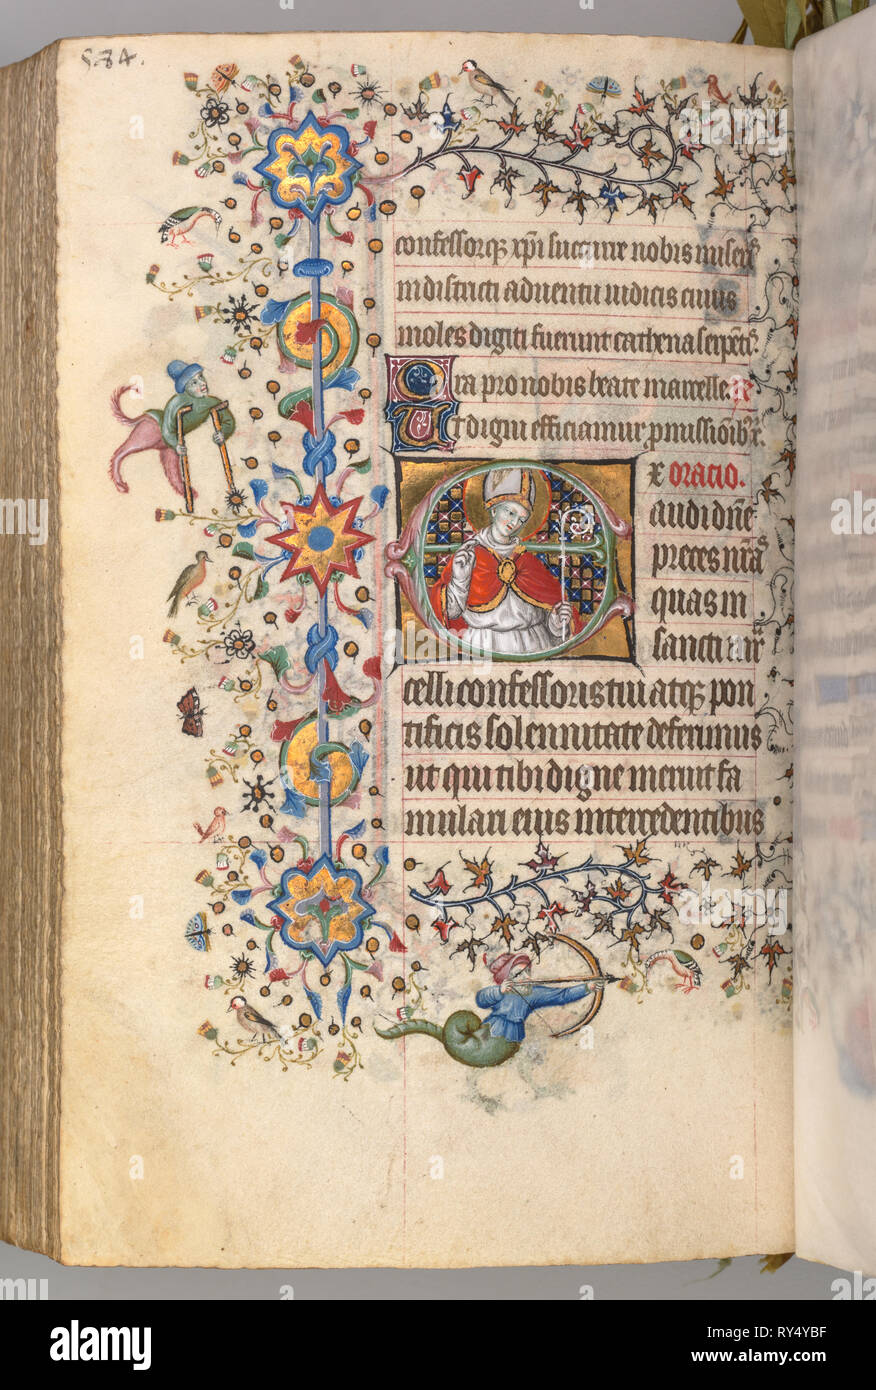 584.
confessorq xpi succurre nobis miseris
in districti adventu iudicis cuius
moles digiti fuerunt cathena serpetis.
Ora pro nobis beate marcelle. R
Ut digni efficiamur pmissioib.
x oratio.
E
xaudi dne
preces nras
quas in
sancti mar
celli confessoris tui atq pon
tificis solennitate deferimus
ut qui tibi digne meruit fa
mulari eius intercedentibus
alamy
alamy
Image ID: RY4YBF
www.alamy.com